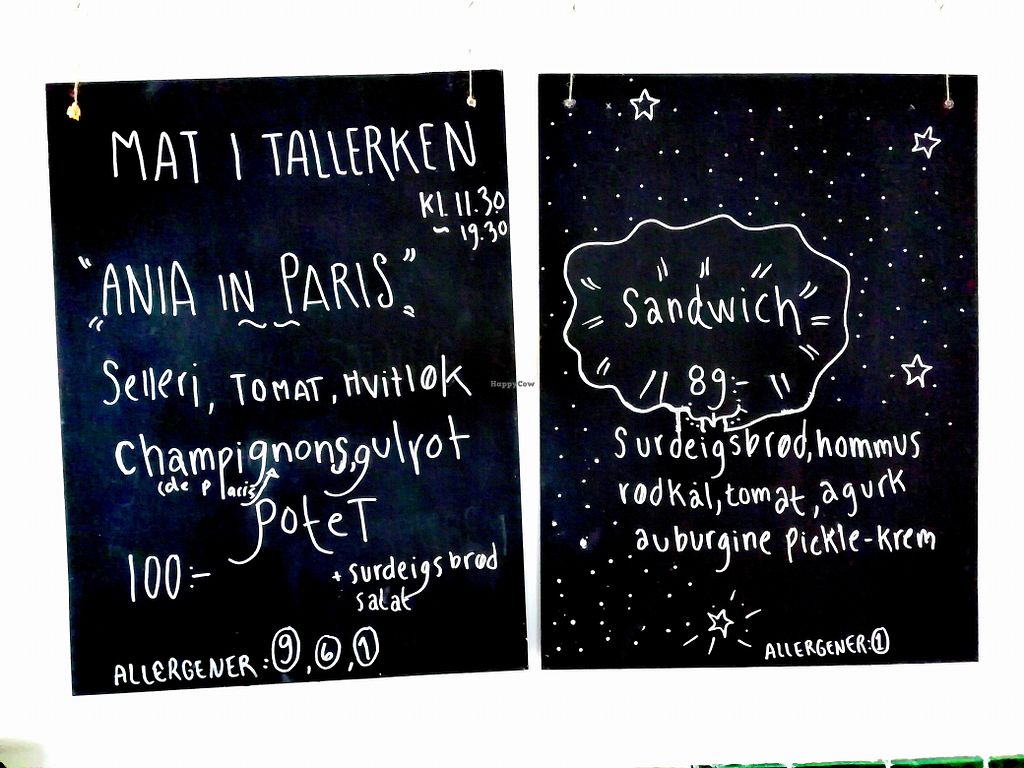 MAT I TALLERKEN
Kl 11.30
- 19.30
"ANIA IN PARIS"
Selleri, TOMAT, Hvitløk
champignons, gulrot
(de Paris
poteT
100:-
+ surdeigsbrød
salat
ALLERGENER: 9, 6, 1
Sandwich
89:-
Surdeigsbrød, hommus
rødkål, tomat, agurk
auburgine pickle-krem
ALLERGENER: 1
HappyCow